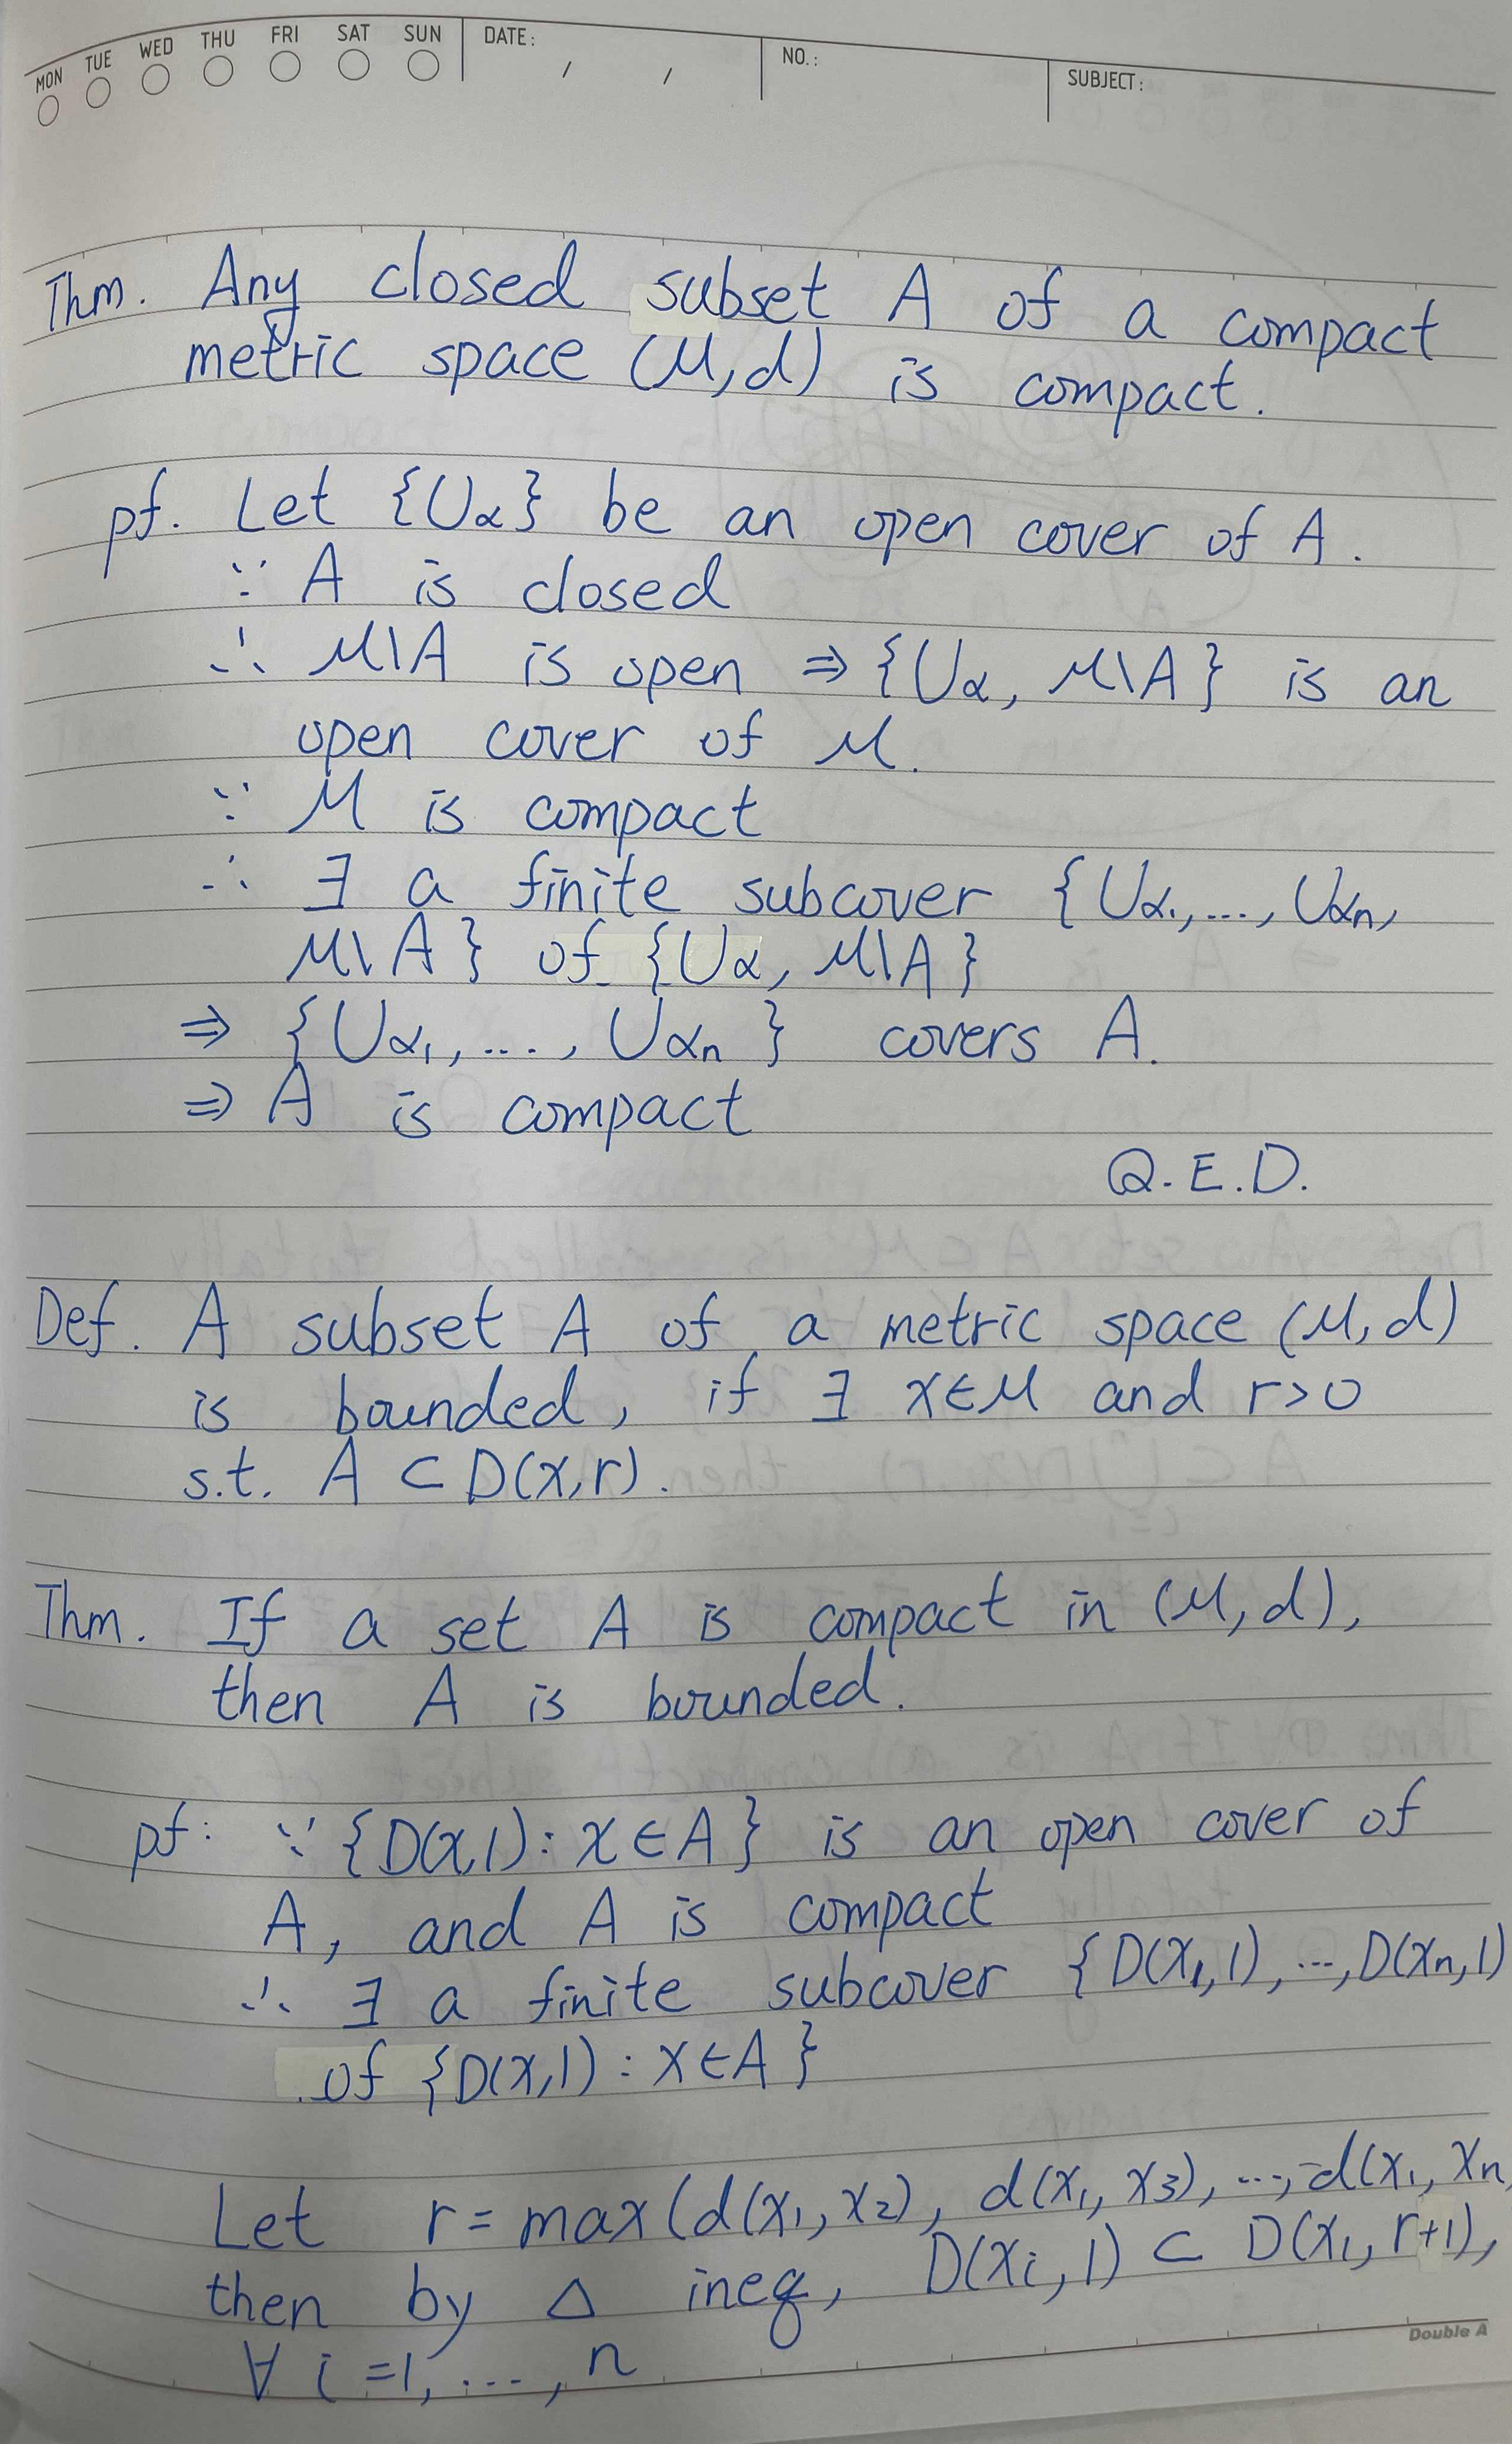 MON TUE WED THU FRI SAT SUN DATE: / / NO.: SUBJECT:
Thm. Any closed subset A of a compact
metric space (M,d) is compact.
pf. Let {Uα} be an open cover of A.
∵ A is closed
∴ M\A is open ⇒ {Uα, M\A} is an
open cover of M.
∵ M is compact
∴ ∃ a finite subcover {Uα₁,..., Uαn,
M\A} of {Uα, M\A}
⇒ {Uα₁,...., Uαn} covers A.
⇒ A is compact
Q.E.D.
Def. A subset A of a metric space (M,d)
is bounded, if ∃ x∈M and r>0
s.t. A ⊂ D(x,r).
Thm. If a set A is compact in (M,d),
then A is bounded.
pf: ∵ {D(x,1): x∈A} is an open cover of
A, and A is compact
∴ ∃ a finite subcover {D(x₁,1),...,D(xn,1)
of {D(x,1): x∈A}
Let r = max(d(x₁,x₂), d(x₁,x₃),..., d(x₁,xn
then by △ ineq, D(xi,1) ⊂ D(x₁,r+1),
∀ i=1,...,n
Double A